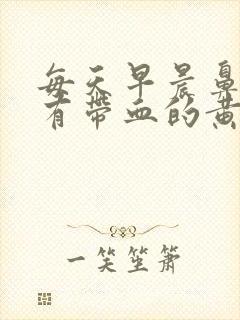 每天早晨鼻
有带血的黄
一笑笙箫